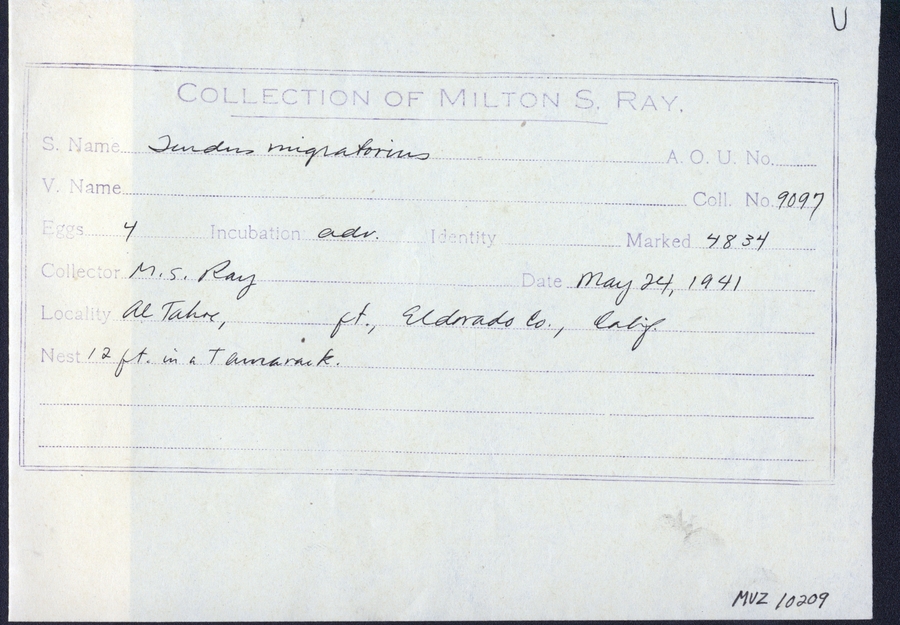 U
COLLECTION OF MILTON S. RAY.
S. Name Turdus migratorius A. O. U. No.
V. Name Coll. No. 9097
Eggs 4 Incubation adv. Identity Marked 4834
Collector M. S. Ray Date May 24, 1941
Locality Al Tahoe, ft., Eldorado Co., Calif.
Nest 12 ft. in a Tamarack.
MVZ 10209